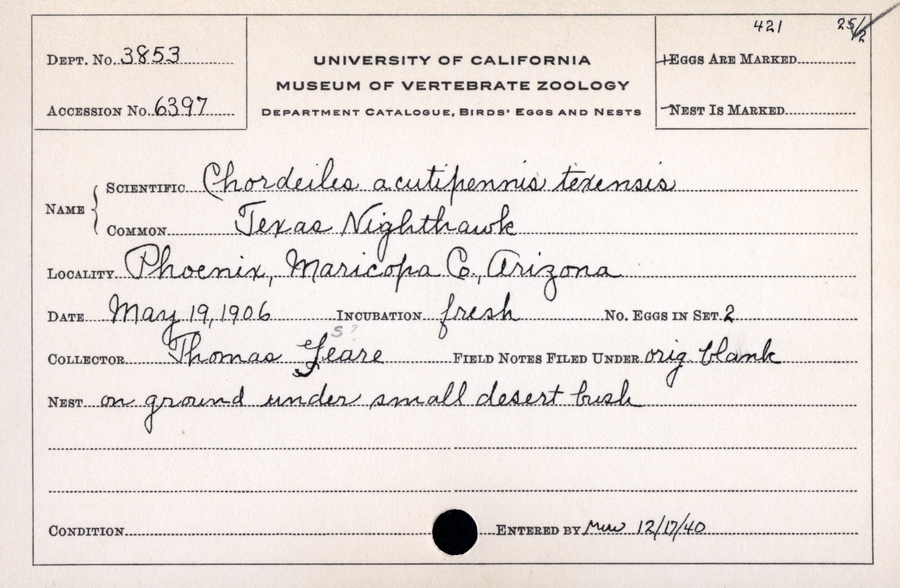 421 25/2
DEPT. NO. 3853
UNIVERSITY OF CALIFORNIA
EGGS ARE MARKED
MUSEUM OF VERTEBRATE ZOOLOGY
ACCESSION NO. 6397
DEPARTMENT CATALOGUE, BIRDS' EGGS AND NESTS
NEST IS MARKED
NAME
SCIENTIFIC Chordeiles acutipennis texensis
COMMON Texas Nighthawk
LOCALITY Phoenix, Maricopa Co., Arizona
DATE May 19, 1906 INCUBATION fresh NO. EGGS IN SET 2
S?
COLLECTOR Thomas Yeare FIELD NOTES FILED UNDER orig. blank
NEST on ground under small desert bush
CONDITION ENTERED BY 12/17/40